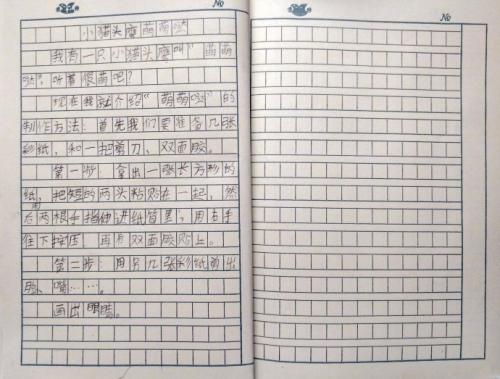 No
No
小猫头鹰萌萌哒
我有一只小猫头鹰叫“萌萌
哒”,听着很萌吧?
现在我就介绍“萌萌哒”的
制作方法:首先我们要准备几张
彩纸,和一把剪刀、双面胶。
第一步:拿出一张长方形的
纸,把短的两头粘贴在一起,然
后用两根手指伸进纸筒里,用右手
往下按压,再用双面胶贴上。
第二步:用另几张彩纸剪出
脸、嘴……。
画出眼睛。